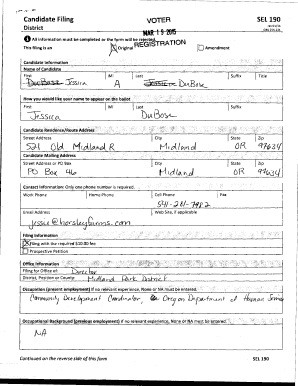 Candidate Filing
District
VOTER
MAR 19 2015
REGISTRATION
SEL 190
All information must be completed or the form will be rejected.
This filing is an
Original
Amendment
Candidate Information
Name of Candidate
First
MI
Last
Suffix
Title
DuBose Jessica
A
Jessica DuBose
How you would like your name to appear on the ballot
First
MI
Last
Suffix
Jessica
DuBose
Candidate Residence/Route Address
Street Address
City
State
Zip
521 Old Midland R
Midland
OR
97634
Candidate Mailing Address
Street Address or PO Box
City
State
Zip
PO Box 46
Midland
OR
97634
Contact Information: Only one phone number is required.
Work Phone
Home Phone
Cell Phone
Fax
541-281-7982
Email Address
Web Site, if applicable
jessie@horsleyfarms.com
Filing Information
Filing with the required $10.00 fee
Prospective Petition
Office Information
Filing for Office of:
Director
District, Position or County:
Midland Park District
Occupation (present employment) If no relevant experience, None or NA must be entered.
Community Development Coordinator, Oregon Department of Human Servic
Occupational Background (previous employment) If no relevant experience, None or NA must be entered.
NA
Continued on the reverse side of this form
SEL 190